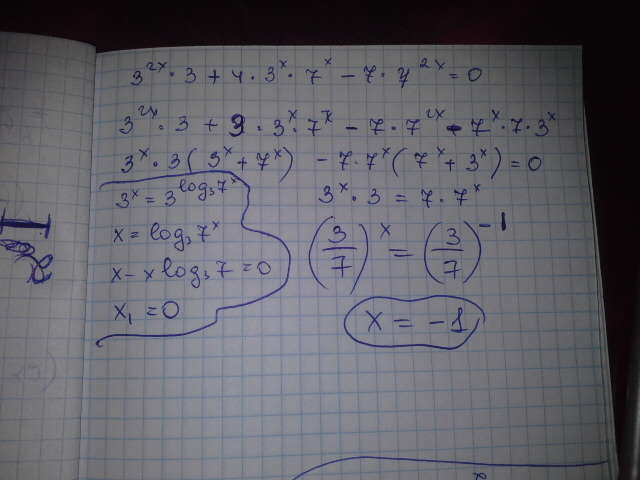 3^{2x} · 3 + 4 · 3^x · 7^x − 7 · 7^{2x} = 0
3^{2x} · 3 + 3 · 3^x · 7^x − 7 · 7^{2x} − 7^x · 7 · 3^x
3^x · 3 (3^x + 7^x) − 7 · 7^x (7^x + 3^x) = 0
3^x = 3^{log_3 7^x}
x = log_3 7^x
x − x log_3 7 = 0
x_1 = 0
3^x · 3 = 7 · 7^x
(3/7)^x = (3/7)^{-1}
x = −1